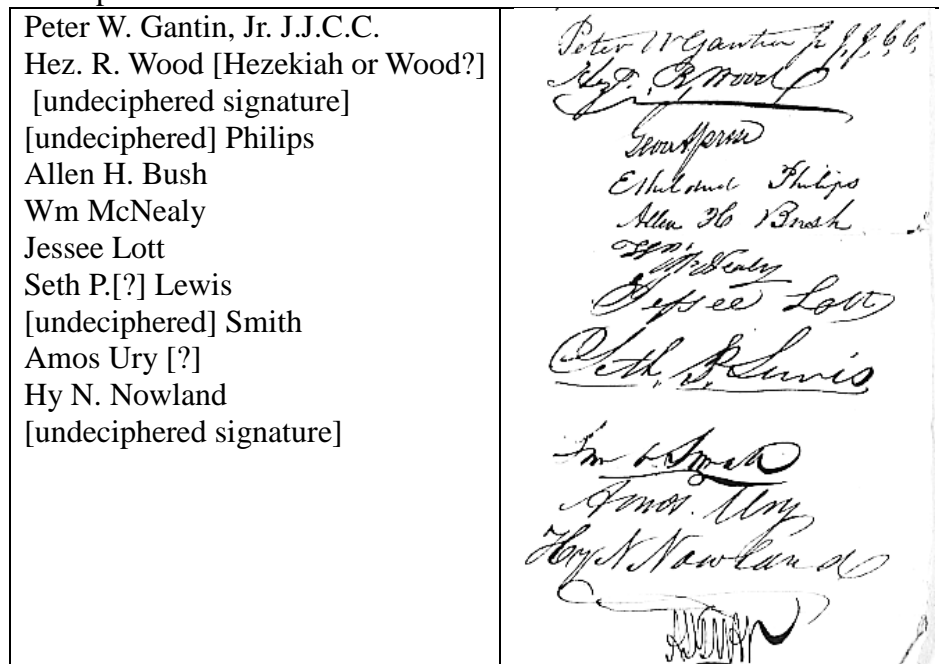 Peter W. Gantin, Jr. J.J.C.C.
Hez. R. Wood [Hezekiah or Wood?]
[undeciphered signature]
[undeciphered] Philips
Allen H. Bush
Wm McNealy
Jessee Lott
Seth P.[?] Lewis
[undeciphered] Smith
Amos Ury [?]
Hy N. Nowland
[undeciphered signature]
Peter W Gautier Jr J. J. C. C.
R. Wood
Philips
Allen H Bush
Wm McNealy
Jessee Lott
Seth P. Lewis
Smith
Amos. Ury
Hy N Nowland